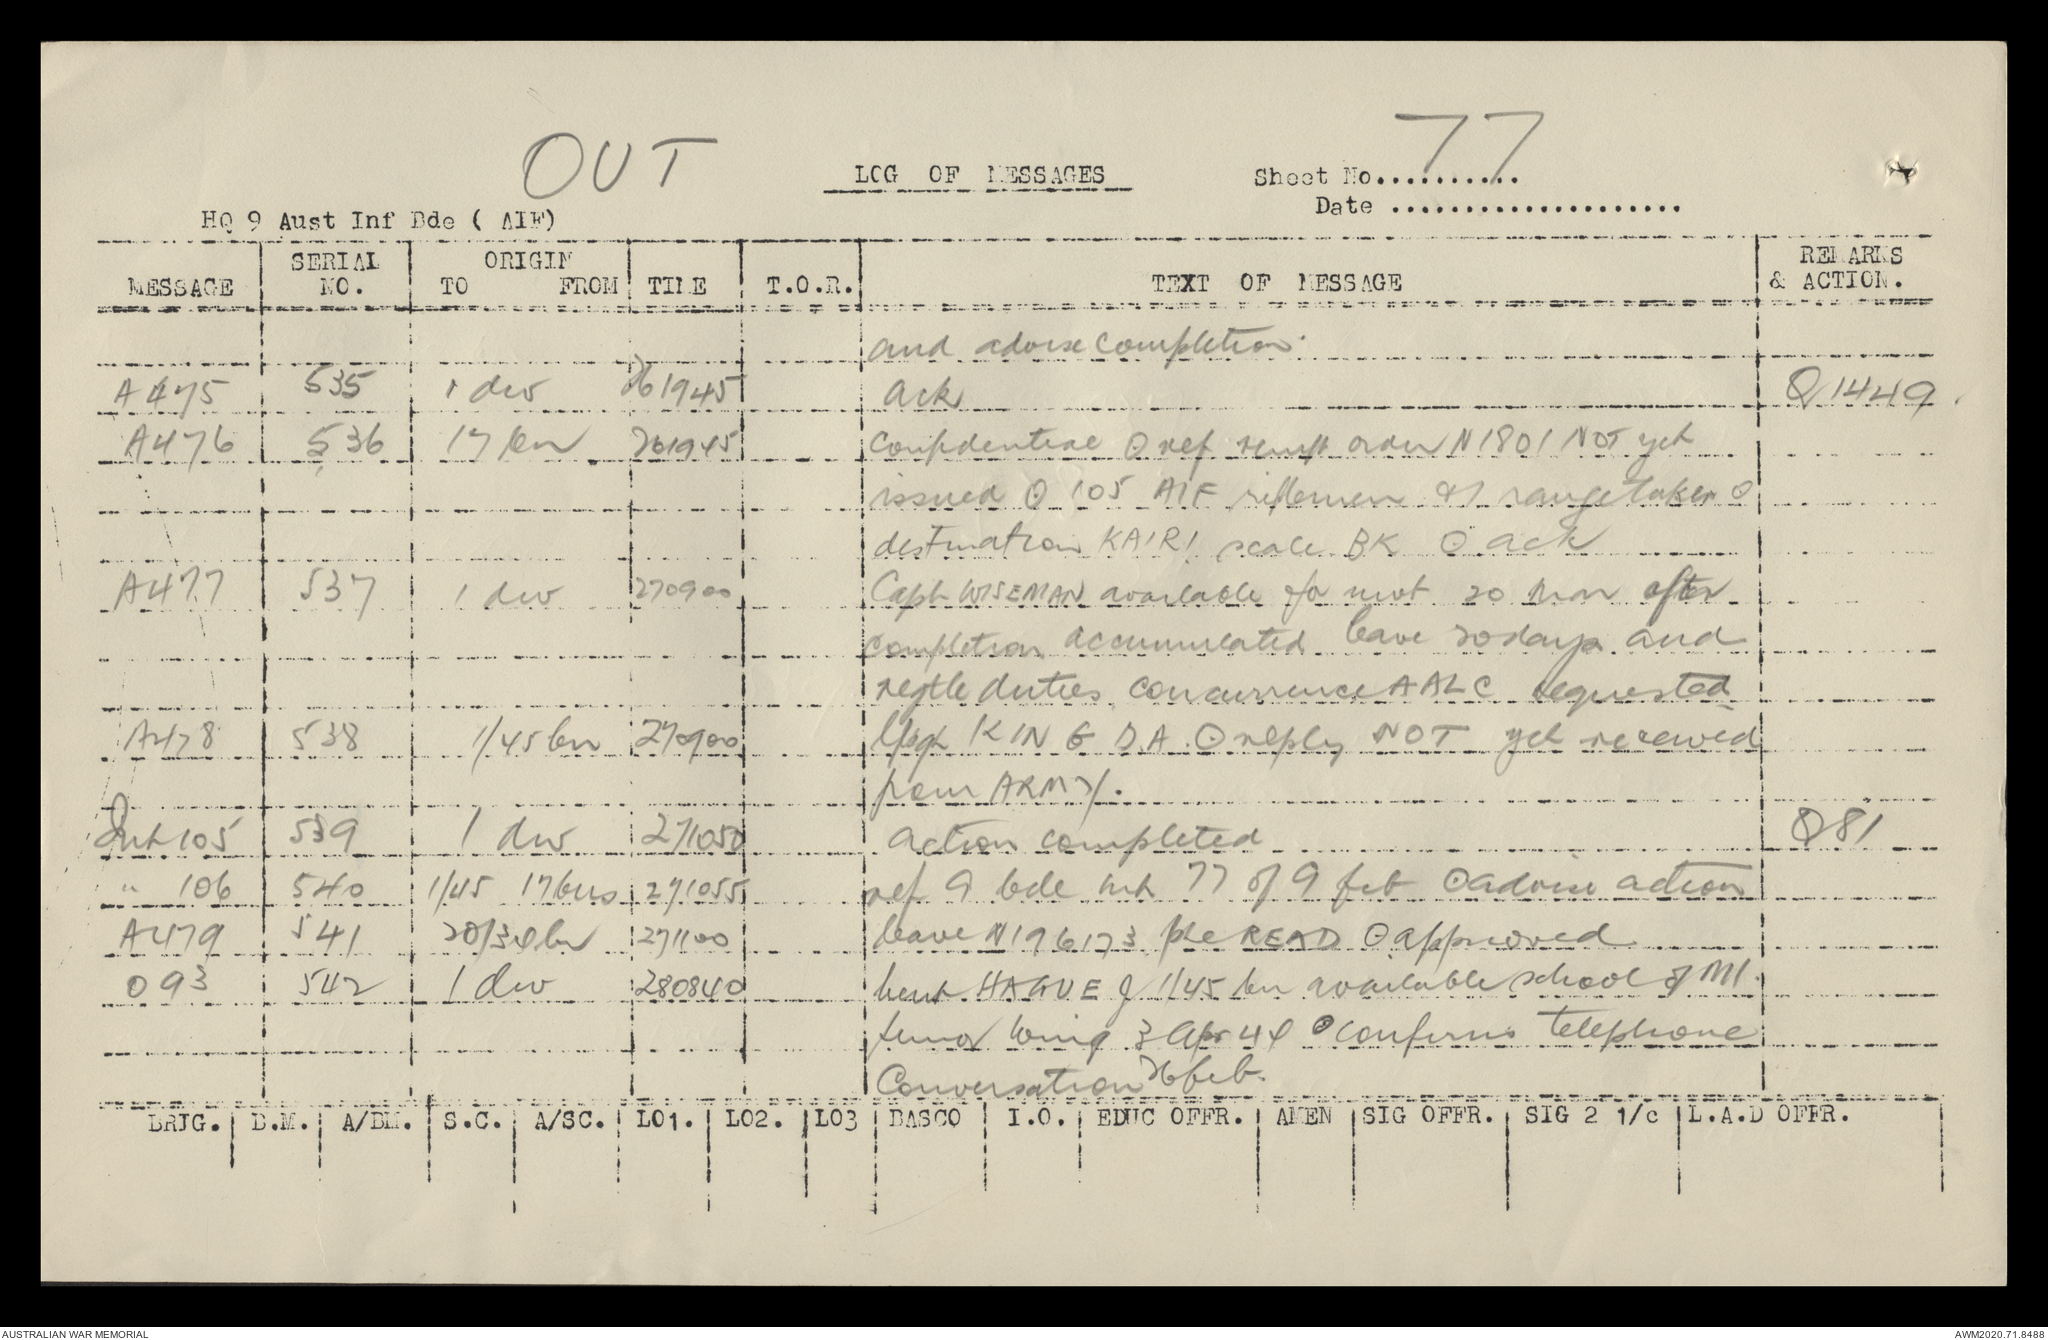 OUT
LOG OF MESSAGES
Sheet No.......... 77
Date ....................
HQ 9 Aust Inf Bde ( AIF)
MESSAGE SERIAL NO. ORIGIN TO FROM TIME T.O.R. TEXT OF MESSAGE REMARKS & ACTION.
and advise completion.
A475 535 1 div 261945 ack Q1449
A476 536 17 bn 261945 confidential ⊙ ref reinft order N1801 NOT yet
issued ⊙ 105 AIF riflemen & 1 rangetaker ⊙
destination KAIRI scale BK ⊙ ack
A477 537 1 div 270900 Capt WISEMAN available for mvt 20 Mar after
completion accumulated leave 20 days and
regtle duties concurrence AALC requested
A478 538 1/45 bn 270900 KING D.A. ⊙ reply NOT yet received
from ARMY.
Int 105 539 1 div 271050 action completed Q81
" 106 540 1/45 17 bns 271055 ref 9 bde int 77 of 9 feb ⊙ advise action
A479 541 20/34 bn 271100 leave N196173 pte READ ⊙ approved
O93 542 1 div 280840 Lieut HAGUE of 1/45 bn available school of MI
wing 3 Apr 44 ⊙ confirms telephone
Conversation 26 feb.
BRIG. B.M. A/BM. S.C. A/SC. LO1. LO2. LO3 BASCO I.O. EDUC OFFR. AMEN SIG OFFR. SIG 2 1/c L.A.D OFFR.
AUSTRALIAN WAR MEMORIAL
AWM2020.71.8488